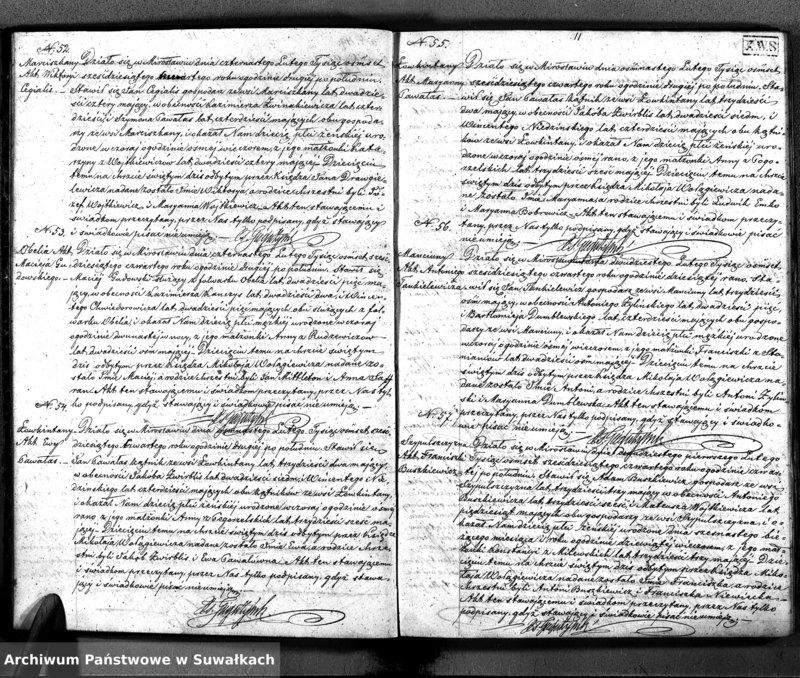 N. 52.
Marciszkany Działo się w Mirosławiu dnia czternastego Lutego Tysiąc osmset
Akt Wiktoryi szesdziesiątego czwartego roku o godzinie drugiej po południu,
Cegialis. Stawił się Jan Cegialis gospodarz ze wsi Marciszkany lat dwadzie-
ścia cztery mający, w obecności Kazimierza lat czter-
dzieści i Szymona Pawałas lat czterdzieści mających obu gospoda-
rzy ze wsi Marciszkany, i okazał Nam dziecię płci żeńskiej uro-
dzone wczoraj o godzinie osmej wieczorem, z jego małżonki Kata-
rzyny z Wojtkiewiczów lat dwadzieścia cztery mającej. Dziecięciu
temu na chrzcie świętym dziś odbytym przez Księdza Jana
nadane zostało Imie Wiktorya, a rodzice chrzestni byli Jó-
zef Wojtkiewicz, i Maryanna Wojtkiewicz. Akt ten stawającemu i
świadkom przeczytany, przez Nas tylko podpisany, gdyż stawający
i świadkowie pisać nie umieją.
N. 53.
Obelia Akt Działo się w Mirosławiu dnia czternastego Lutego Tysiąc osmset szes-
Macieja Gu- dziesiątego czwartego roku o godzinie drugiej po południu. Stawił się
dowskiego. Maciej Gudowski służący z folwarku Obelia lat dwadzieścia pięć ma-
jący, w obecności Kazimierza lat dwadzieścia dwa, i Wincen-
tego Chwiedorowicza lat dwadzieścia pięć mających obu służących z fol-
warku Obelia, i okazał Nam dziecię płci męzkiej urodzone wczoraj
o godzinie dwunastej w nocy, z jego małżonki Anny z Rudzewiczów
lat dwadzieścia osm mającej. Dziecięciu temu na chrzcie świętym
dziś odbytym przez Księdza Mikołaja Wołągiewicza nadane zo-
stało Imie Maciej, a rodzice chrzestni byli Jan Mittleton i Anna
Akt ten stawającemu i świadkom przeczytany, przez Nas tyl-
ko podpisany, gdyż stawający i świadkowie pisać nie umieją.
N. 54.
Łowkintany Działo się w Mirosławiu dnia osmnastego Lutego Tysiąc osmset szes-
Akt Ewy dziesiątego czwartego roku o godzinie drugiej po południu. Stawił się
Pawałas. Jan Pawałas kątnik ze wsi Łowkintany lat trzydzieści dwa mający,
w obecności Jakóba Żwirblis lat dwadzieścia siedm, i Wincentego Nie-
dzinskiego lat czterdzieści mających obu kątników ze wsi Łowkintany,
i okazał Nam dziecię płci żeńskiej urodzone wczoraj o godzinie osmej
rano, z jego małżonki Anny z Pogorzelskich lat trzydzieści sześć ma-
jącej. Dziecięciu temu na chrzcie świętym dziś odbytym przez Księdza
Mikołaja Wołągiewicza nadane zostało Imie Ewa, a rodzice chrze-
stni byli Jakób Żwirblis i Ewa Akt ten stawającemu
i świadkom przeczytany, przez Nas tylko podpisany, gdyż stawa-
jący i świadkowie pisać nie umieją.
11
Z.W.S.
N. 55.
Łowkintany Działo się w Mirosławiu dnia osmnastego Lutego Tysiąc osmset
Akt Maryanny szesdziesiątego czwartego roku o godzinie drugiej po południu. Sta-
Pawałas. wił się Jan Pawałas kątnik ze wsi Łowkintany lat trzydzieści
dwa mający, w obecności Jakóba Żwirblis lat dwadzieścia siedm, i
Wincentego Niedzinskiego lat czterdzieści mających obu kątni-
ków ze wsi Łowkintany, i okazał Nam dziecię płci żeńskiej uro-
dzone wczoraj o godzinie osmej rano, z jego małżonki Anny z Pogo-
rzelskich lat trzydzieści sześć mającej. Dziecięciu temu na chrzcie
świętym dziś odbytym przez Księdza Mikołaja Wołągiewicza nada-
ne zostało Imie Maryanna, a rodzice chrzestni byli Ludwik
i Maryanna Bobrowicz. Akt ten stawającemu i świadkom przeczy-
tany, przez Nas tylko podpisany, gdyż stawający i świadkowie pisać
nie umieją.
N. 56.
Manciuny Działo się w Mirosławiu dnia dwudziestego Lutego Tysiąc osmset
Akt Antoniego szesdziesiątego czwartego roku o godzinie dziesiątej rano. Sta-
Jankielewicza wił się Jan Jankielewicz gospodarz ze wsi Manciuny lat trzydzieści
osm mający, w obecności Antoniego Żylinskiego lat dwadzieścia pięć,
i Bartłomieja Dumblewskiego lat czterdzieści mających obu gospo-
darzy ze wsi Manciuny, i okazał Nam dziecię płci męzkiej urodzone
wczoraj o godzinie osmej wieczorem, z jego małżonki Franciszki z
lat dwadzieścia osm mającej. Dziecięciu temu na chrzcie
świętym dziś odbytym przez Księdza Mikołaja Wołągiewicza na-
dane zostało Imie Antoni, a rodzice chrzestni byli Antoni Żylin-
ski i Maryanna Dumblewska. Akt ten stawającemu i świadkom
przeczytany, przez Nas tylko podpisany, gdyż stawający i świadko-
wie pisać nie umieją.
N. 57.
Działo się w Mirosławiu dnia dwudziestego pierwszego Lutego
Akt Franciszki Tysiąc osmset szesdziesiątego czwartego roku o godzinie czwar-
Buszkiewicz tej po południu. Stawił się Adam Buszkiewicz gospodarz ze wsi
lat trzydzieści trzy mający, w obecności Antoniego
Buszkiewicza lat trzydzieści sześć, i Mateusza Wojtkiewicza lat
pięćdziesiąt mających obu gospodarzy ze wsi i o-
kazał Nam dziecię płci żeńskiej urodzone dnia szesnastego bie-
żącego miesiąca i roku o godzinie dziewiątej wieczorem, z jego mał-
żonki Konstancyi z Milewskich lat trzydzieści trzy mającej. Dzie-
cięciu temu na chrzcie świętym dziś odbytym przez Księdza Miko-
łaja Wołągiewicza nadane zostało Imie Franciszka, a rodzice
chrzestni byli Antoni Buszkiewicz i Franciszka
Akt ten stawającemu i świadkom przeczytany, przez Nas tylko
podpisany, gdyż stawający i świadkowie pisać nie umieją.
Archiwum Państwowe w Suwałkach